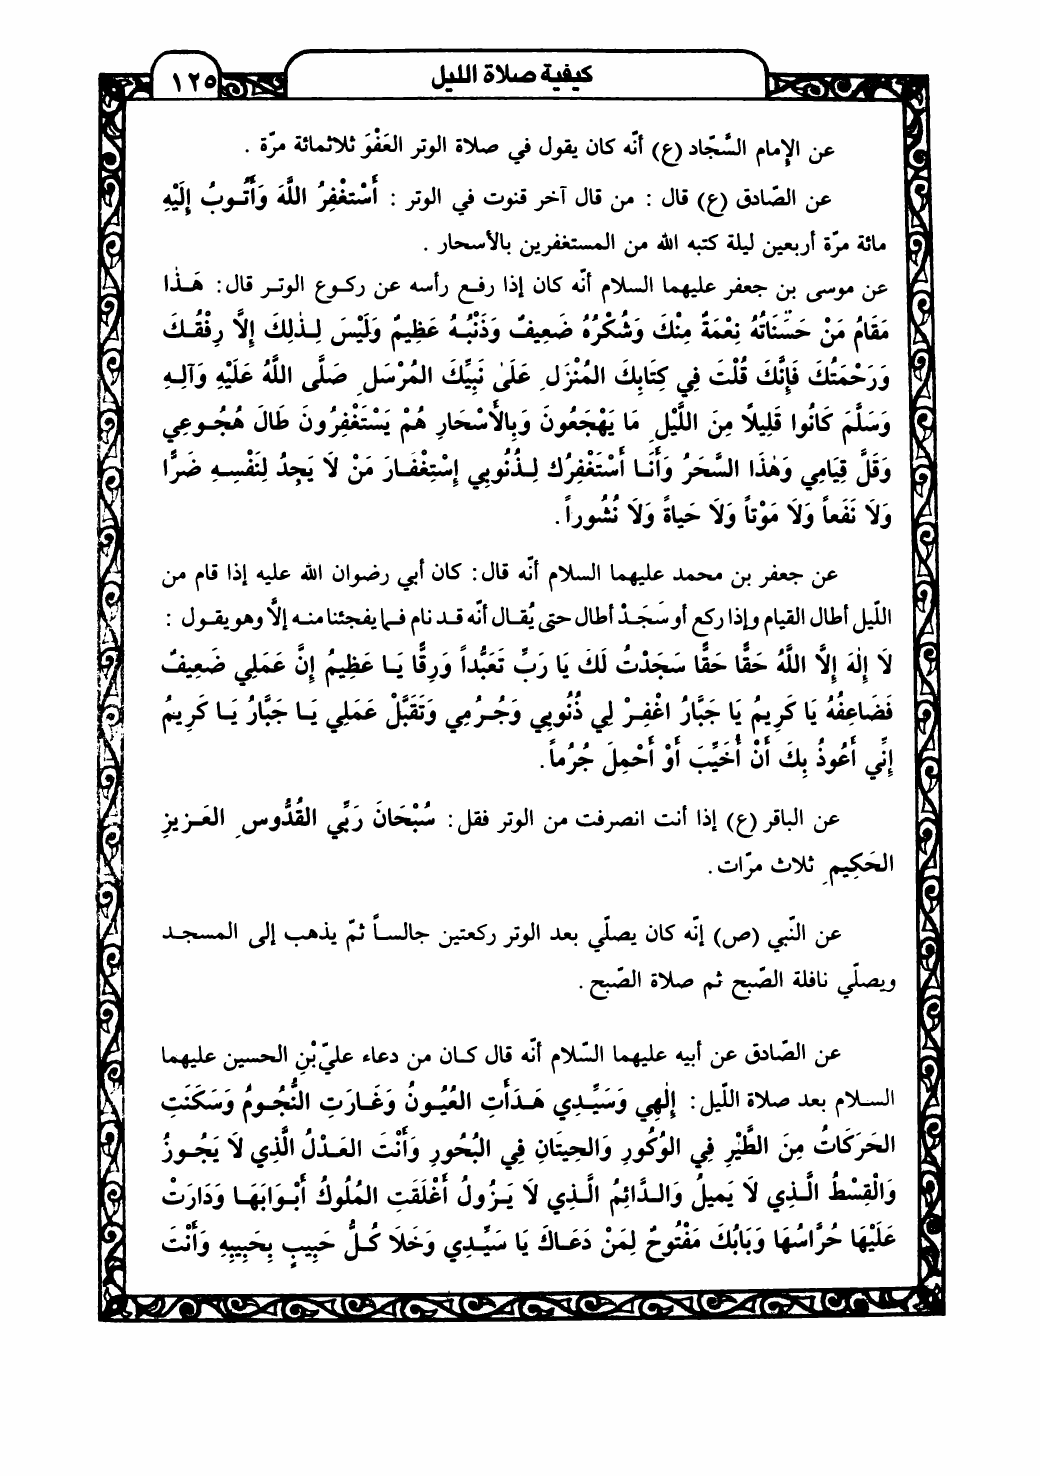 كيفية صلاة الليل
١٢٥
عن الإمام السَّجّاد (ع) أنّه كان يقول في صلاة الوتر العَفْوَ ثلاثمائة مرّة .
عن الصّادق (ع) قال : من قال آخر قنوت في الوتر : أَسْتَغْفِرُ اللَّهَ وَأَتُوبُ إِلَيْهِ
مائة مرّة أربعين ليلة كتبه الله من المستغفرين بالأسحار .
عن موسى بن جعفر عليهما السلام أنّه كان إذا رفع رأسه عن ركوع الوتر قال : هَـٰذَا
مَقَامُ مَنْ حَسَنَاتُهُ نِعْمَةٌ مِنْكَ وَشُكْرُهُ ضَعِيفٌ وَذَنْبُهُ عَظِيمٌ وَلَيْسَ لِذٰلِكَ إِلاَّ رِفْقُكَ
وَرَحْمَتُكَ فَإِنَّكَ قُلْتَ فِي كِتَابِكَ المُنْزَلِ عَلىٰ نَبِيِّكَ المُرْسَلِ صَلَّى اللَّهُ عَلَيْهِ وَآلِهِ
وَسَلَّمَ كَانُوا قَلِيلاً مِنَ اللَّيْلِ مَا يَهْجَعُونَ وَبِالأَسْحَارِ هُمْ يَسْتَغْفِرُونَ طَالَ هُجُوعِي
وَقَلَّ قِيَامِي وَهٰذَا السَّحَرُ وَأَنَا أَسْتَغْفِرُكَ لِذُنُوبِي إِسْتِغْفَارَ مَنْ لاَ يَجِدُ لِنَفْسِهِ ضَرًّا
وَلاَ نَفَعاً وَلاَ مَوْتاً وَلاَ حَياةً وَلاَ نُشُوراً .
عن جعفر بن محمد عليهما السلام أنّه قال : كان أبي رضوان الله عليه إذا قام من
اللّيل أطال القيام وإذا ركع أو سَجَدْ أطال حتى يُقال أنّه قد نام فما يفجئنا منه إلاَّ وهو يقول :
لاَ إِلٰهَ إِلاَّ اللَّهُ حَقًّا حَقًّا سَجَدْتُ لَكَ يَا رَبِّ تَعَبُّداً وَرِقًّا يَا عَظِيمُ إِنَّ عَمَلِي ضَعِيفٌ
فَضَاعِفُهُ يَا كَرِيمُ يَا جَبَّارُ اغْفِرْ لِي ذُنُوبِي وَجُرُمِي وَتَقَبَّلْ عَمَلِي يَا جَبَّارُ يَا كَرِيمُ
إِنِّي أَعُوذُ بِكَ أَنْ أُخَيِّبَ أَوْ أَحْمِلَ جُرُماً .
عن الباقر (ع) إذا أنت انصرفت من الوتر فقل : سُبْحَانَ رَبِّي القُدُّوسِ العَزِيزِ
الحَكِيمِ ثلاث مرّات .
عن النّبي (ص) إنّه كان يصلّي بعد الوتر ركعتين جالساً ثمّ يذهب إلى المسجد
ويصلّي نافلة الصّبح ثم صلاة الصّبح .
عن الصّادق عن أبيه عليهما السّلام أنّه قال كان من دعاء عليّ بْنِ الحسين عليهما
السلام بعد صلاة اللّيل : إِلٰهِي وَسَيِّدِي هَدَأَتِ العُيُونُ وَغَارَتِ النُّجُومُ وَسَكَنَتِ
الحَرَكَاتُ مِنَ الطَّيْرِ فِي الوُكُورِ وَالحِيتَانِ فِي البُحُورِ وَأَنْتَ العَدْلُ الَّذِي لاَ يَجُوزُ
وَالْقِسْطُ الَّذِي لاَ يَمِيلُ وَالدَّائِمُ الَّذِي لاَ يَزُولُ أَغْلَقَتِ المُلُوكُ أَبْوَابَهَا وَدَارَتْ
عَلَيْهَا حُرَّاسُهَا وَبَابُكَ مَفْتُوحٌ لِمَنْ دَعَاكَ يَا سَيِّدِي وَخَلَا كُلُّ حَبِيبٍ بِحَبِيبِهِ وَأَنْتَ